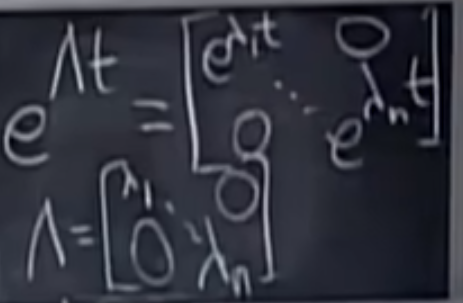 e^{Λt} = [e^{λ₁t} 0
⋱
0 e^{λₙt}]
Λ = [λ₁ 0
⋱
0 λₙ]